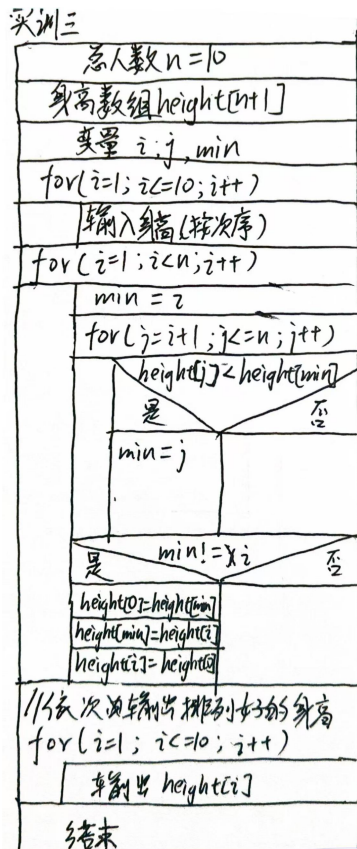 实训三
总人数n=10
身高数组height[n+1]
变量 i,j,min
for(i=1;i<=10;i++)
输入身高(按次序)
for(i=1;i<n;i++)
min = i
for(j=i+1;j<=n;j++)
height[j]<height[min]
是 否
min=j
min!=i
是 否
height[0]=height[min]
height[min]=height[i]
height[i]=height[0]
//依次输出排列好的身高
for(i=1;i<=10;i++)
输出 height[i]
结束